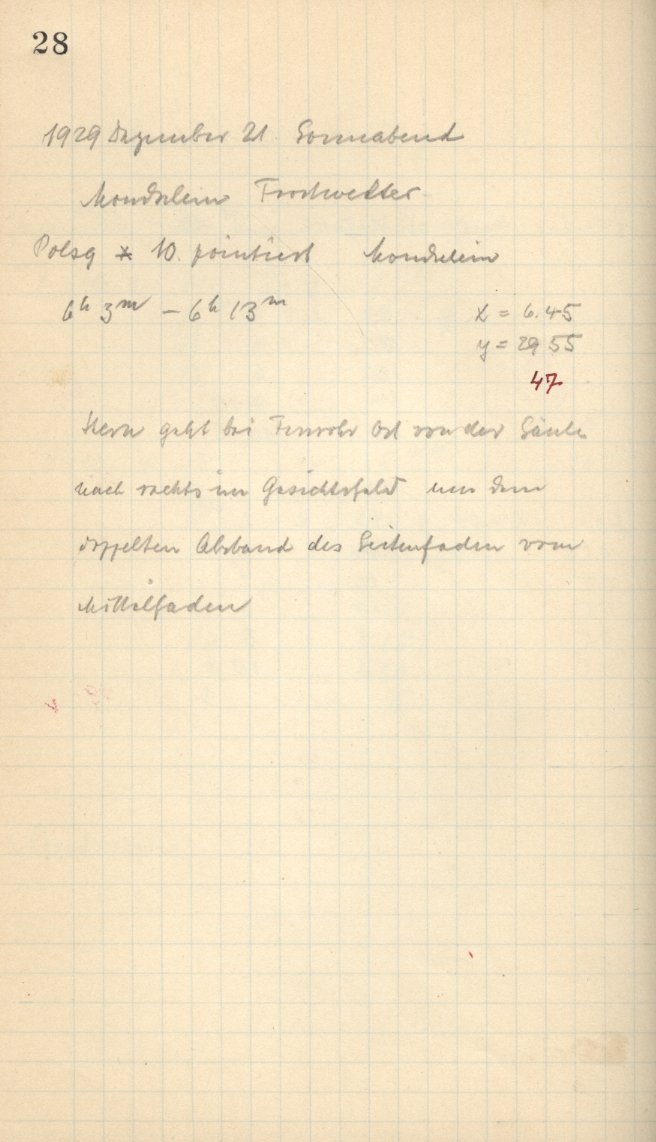 28
1929 Dezember 21. Sonnabend
Mondschein Frostwetter
Polsq * 10. pointiert Mondschein
6h 3m – 6h 13m x = 6.45
y = 29 55
47
Stern geht bei Fernrohr Ost von der Säule
nach rechts im Gesichtsfeld um den
doppelten Abstand des Seitenfaden vom
Mittelfaden